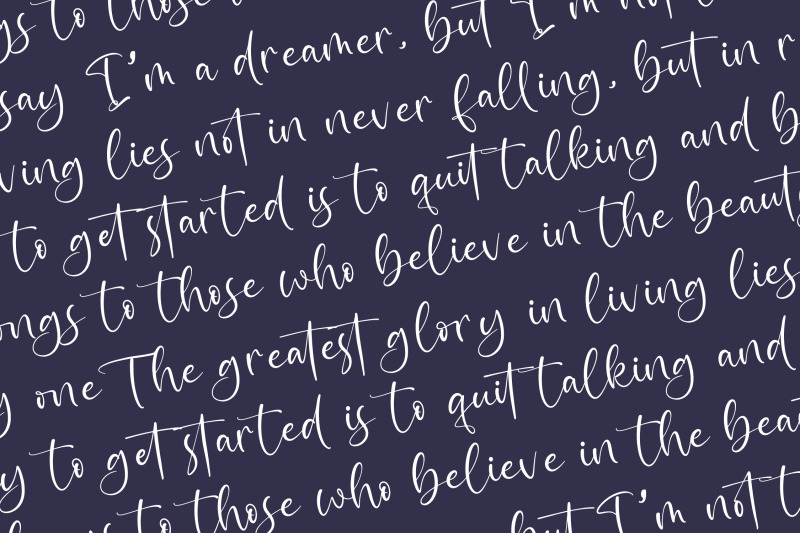 gs to those
say I'm a dreamer, but I'm not t
ving lies not in never falling, but in r
to get started is to quit talking and b
ongs to those who believe in the beaut
y one The greatest glory in living lies
y to get started is to quit talking and
to those who believe in the bea
but I'm not t